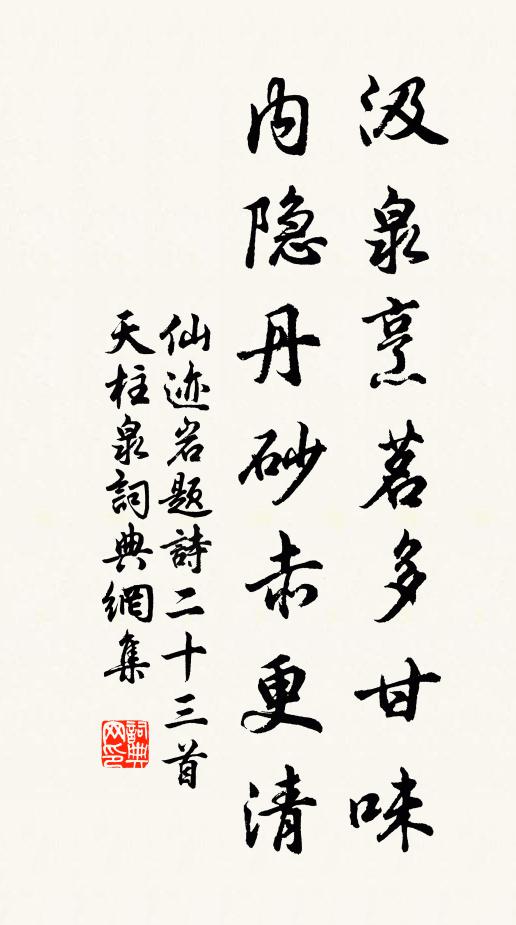 汲泉烹茗多甘味
内隐丹砂赤更清
仙迹岩题詩二十三首
天柱泉詞典網集
詞典网印